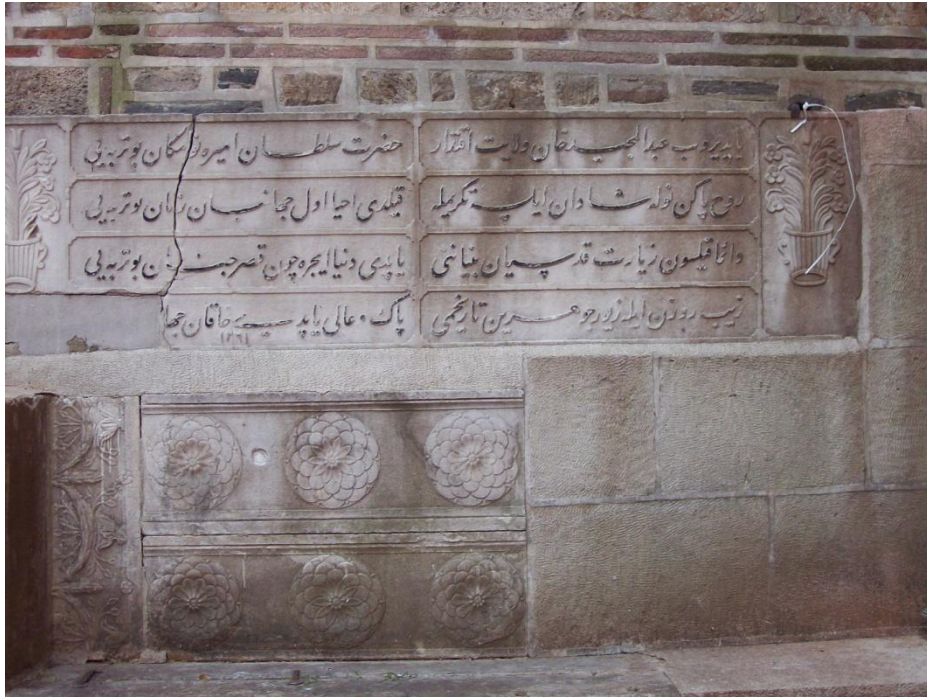 یاپدیروب عبدالمجید خان ولایت اقتدار حضرت سلطان امیره بو تربه یی
روح پاکن شادان ایلیوب قیلدی احیا اول جهانبان زمان بو تربه یی
دائما قیلسون زیارت قدسیان بنیاننی یاپدی دنیا ایچره چون قصر جنان بو تربه یی
زیور جوهرین تاریخمی پاک و عالی یاپدی خاقان جهان
١٢٦١